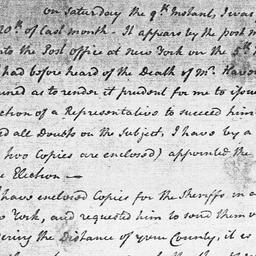 on Saturday the 9th Instant, I was
20th of last month. It appears by the post m
into the Post office at New York on the 5th
had before heard of the Death of Mr.
as to render it prudent for me to
ection of a Representative to succeed him
ed all Doubts on the Subject, I have by a
two Copies are enclosed) appointed the
e Election —
have enclosed Copies for the Sheriffs in a
York, and requested him to send them
ering the Distance of your County, it is